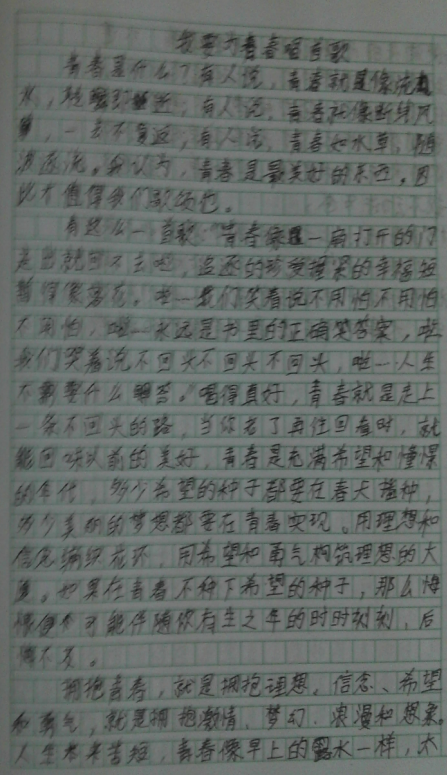 我要为青春唱首歌
青春是什么？有人说，青春就是像流
水，有人说，青春就像断线风
筝，一去不复返；有人说，青春如水草，随
波逐流。我认为，青春是最美好的东西。因
此才值得我们歌颂它。
有这么一首歌“青春像一扇打开的门
走出就回不去啦，追逐的
啦—我们笑着说不用怕不用怕
不用怕，啦—永远是书里的正确答案，啦
我们笑着说不回头不回头不回头，啦—人生
不需要什么解答。”唱得真好，青春就是走上
一条不回头的路，当你老了再往回看时，就
能回味从前的美好，青春是充满希望和憧憬
的年代，多少希望的种子都要在春天播种，
多少美丽的梦想都要在青春实现。用理想和
信念编织花环，用希望和勇气构筑理想的大
厦。如果在青春不种下希望的种子，那么悔
恨便可能伴随你有生之年的时时刻刻，后
悔不及。
拥抱青春，就是拥抱理想、信念、希望
和勇气，就是拥抱激情、梦幻、浪漫和想象。
人生本来苦短，青春像早上的露水一样，太